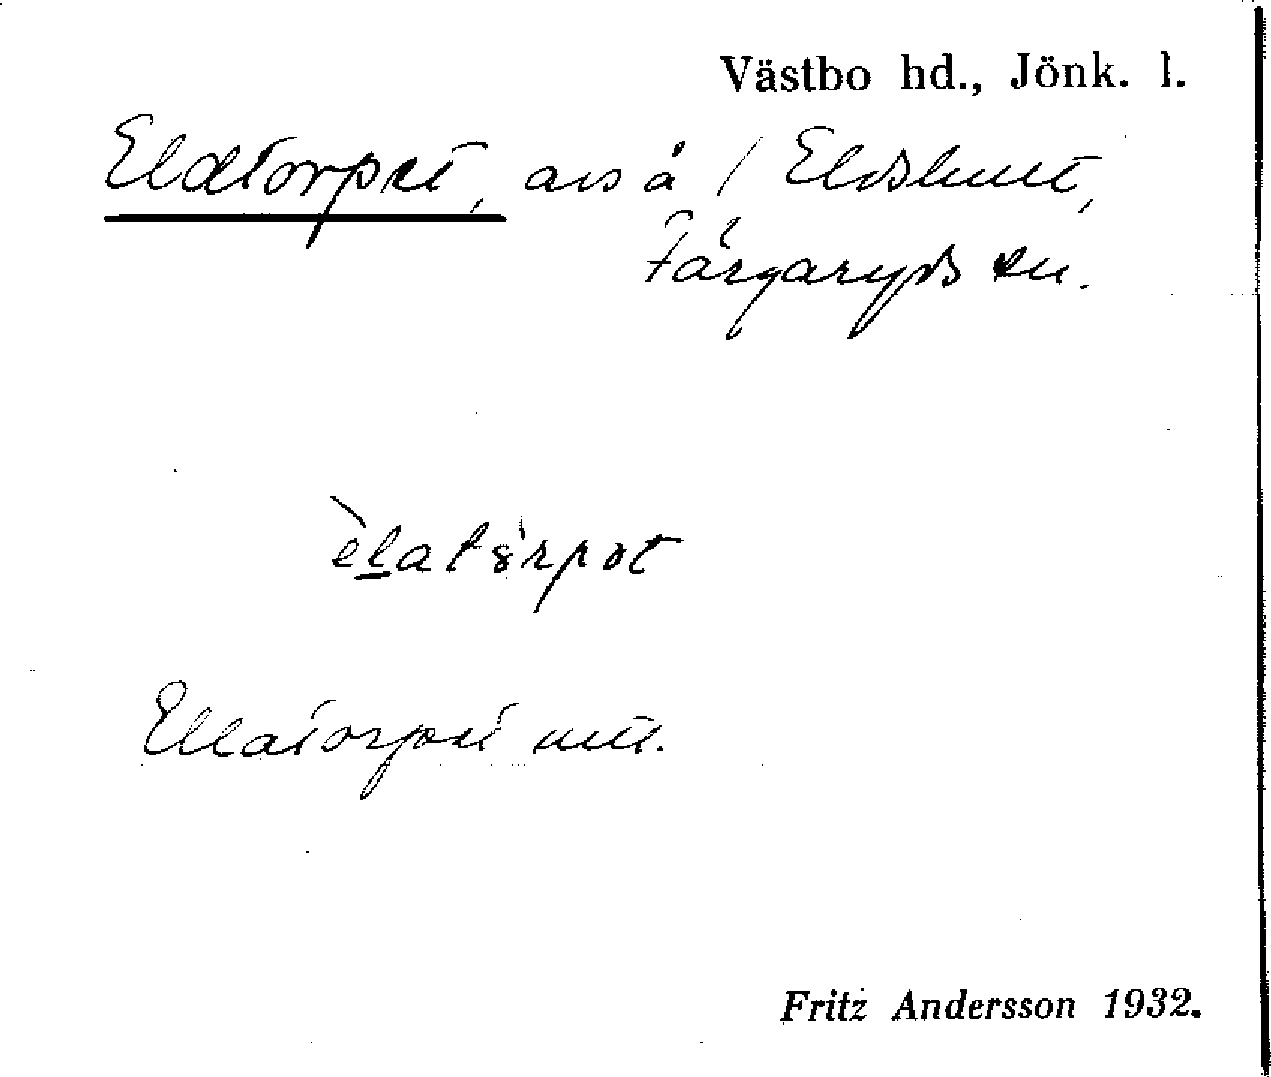 Västbo hd., Jönk. l.
Eldtorpet, avs å 1 Eldshult,
Färgaryds sn.
èlatàrpət
Ellatorpet utt.
Fritz Andersson 1932.